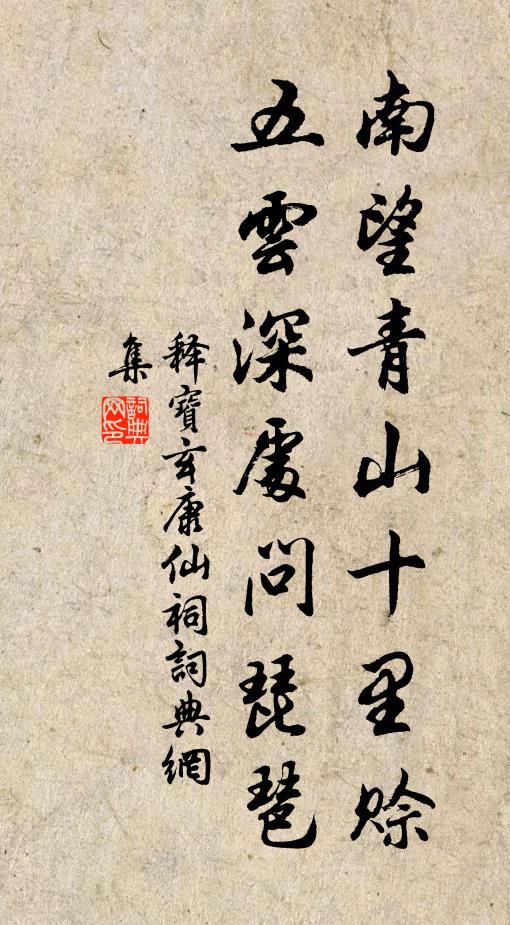 南望青山十里賒
五雲深處問琵琶
释寶玄康仙祠詞典網
集
詞典網印